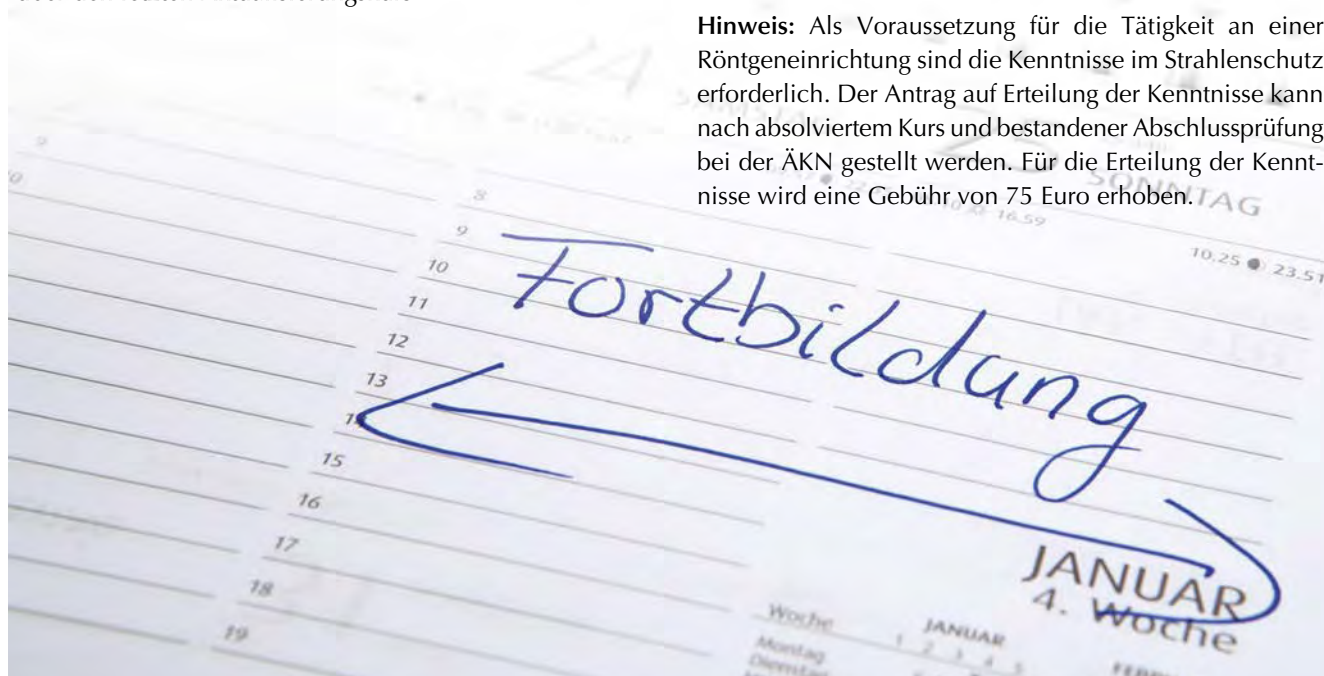 Hinweis: Als Voraussetzung für die Tätigkeit an einer
Röntgeneinrichtung sind die Kenntnisse im Strahlenschutz
erforderlich. Der Antrag auf Erteilung der Kenntnisse kann
nach absolviertem Kurs und bestandener Abschlussprüfung
bei der ÄKN gestellt werden. Für die Erteilung der Kennt-
nisse wird eine Gebühr von 75 Euro erhoben.
24
SAMSTAG
25
SONNTAG
16.59
10.25 23.51
8
9
10
11
12
13
15
16
17
18
19
9
Fortbildung
JANUAR
4. Woche
Woche JANUAR
1 2 3 4 5
Montag
Dienstag